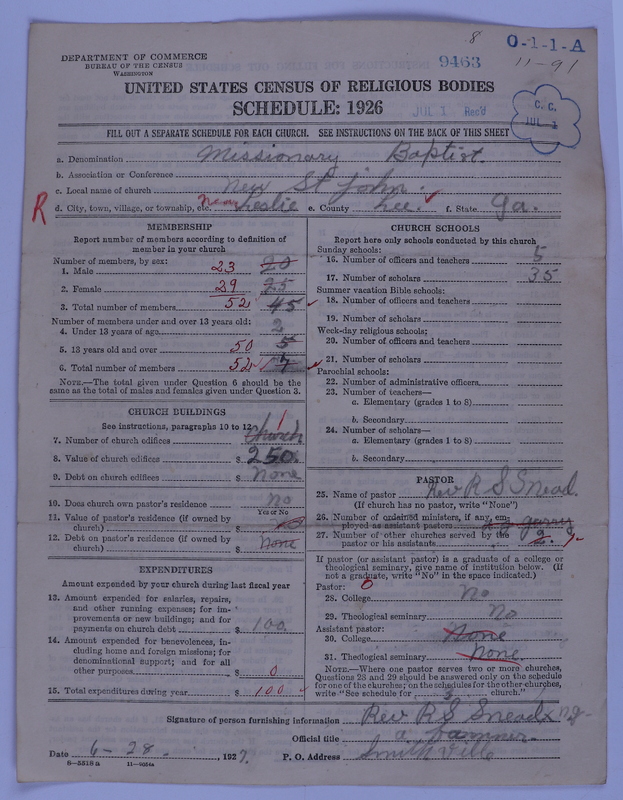 8
O-1-1-A
DEPARTMENT OF COMMERCE
BUREAU OF THE CENSUS
WASHINGTON
9463
11-91
UNITED STATES CENSUS OF RELIGIOUS BODIES
SCHEDULE: 1926
JUL 1 Rec'd
C. C.
JUL 1
FILL OUT A SEPARATE SCHEDULE FOR EACH CHURCH. SEE INSTRUCTIONS ON THE BACK OF THIS SHEET
a. Denomination Missionary Baptist.
b. Association or Conference
c. Local name of church New St John.
R
d. City, town, village, or township, etc. Near Leslie e. County Lee. f. State Ga.
MEMBERSHIP
Report number of members according to definition of member in your church
Number of members, by sex:
1. Male 23 20
2. Female 29 25
3. Total number of members 52 45
Number of members under and over 13 years old:
4. Under 13 years of age 2
5. 13 years old and over 50 5
6. Total number of members 52 7
NOTE.—The total given under Question 6 should be the same as the total of males and females given under Question 3.
CHURCH BUILDINGS
See instructions, paragraphs 10 to 12
7. Number of church edifices 1 Church
8. Value of church edifices $ 250
9. Debt on church edifices $ None
10. Does church own pastor's residence No
Yes or No
11. Value of pastor's residence (if owned by church) $
12. Debt on pastor's residence (if owned by church) $ None
EXPENDITURES
Amount expended by your church during last fiscal year
13. Amount expended for salaries, repairs, and other running expenses; for improvements or new buildings; and for payments on church debt $ 100
14. Amount expended for benevolences, including home and foreign missions; for denominational support; and for all other purposes $ 0
15. Total expenditures during year $ 100
CHURCH SCHOOLS
Report here only schools conducted by this church
Sunday schools:
16. Number of officers and teachers 5
17. Number of scholars 35
Summer vacation Bible schools:
18. Number of officers and teachers
19. Number of scholars
Week-day religious schools:
20. Number of officers and teachers
21. Number of scholars
Parochial schools:
22. Number of administrative officers
23. Number of teachers—
a. Elementary (grades 1 to 8)
b. Secondary
24. Number of scholars—
a. Elementary (grades 1 to 8)
b. Secondary
PASTOR
25. Name of pastor Rev R S Snead.
(If church has no pastor, write "None")
26. Number of ordained ministers, if any, employed as assistant pastors
27. Number of other churches served by the pastor or his assistants 2.
If pastor (or assistant pastor) is a graduate of a college or theological seminary, give name of institution below. (If not a graduate, write "No" in the space indicated.)
Pastor:
28. College No
29. Theological seminary No
Assistant pastor:
30. College None
31. Theological seminary None.
NOTE.—Where one pastor serves two or more churches, Questions 28 and 29 should be answered only on the schedule for one of the churches; on the schedules for the other churches, write "See schedule for 3 church."
Signature of person furnishing information Rev R S Snead
Official title
Date 6-28., 1927. P. O. Address Smithville
8-5518a 11-9264a